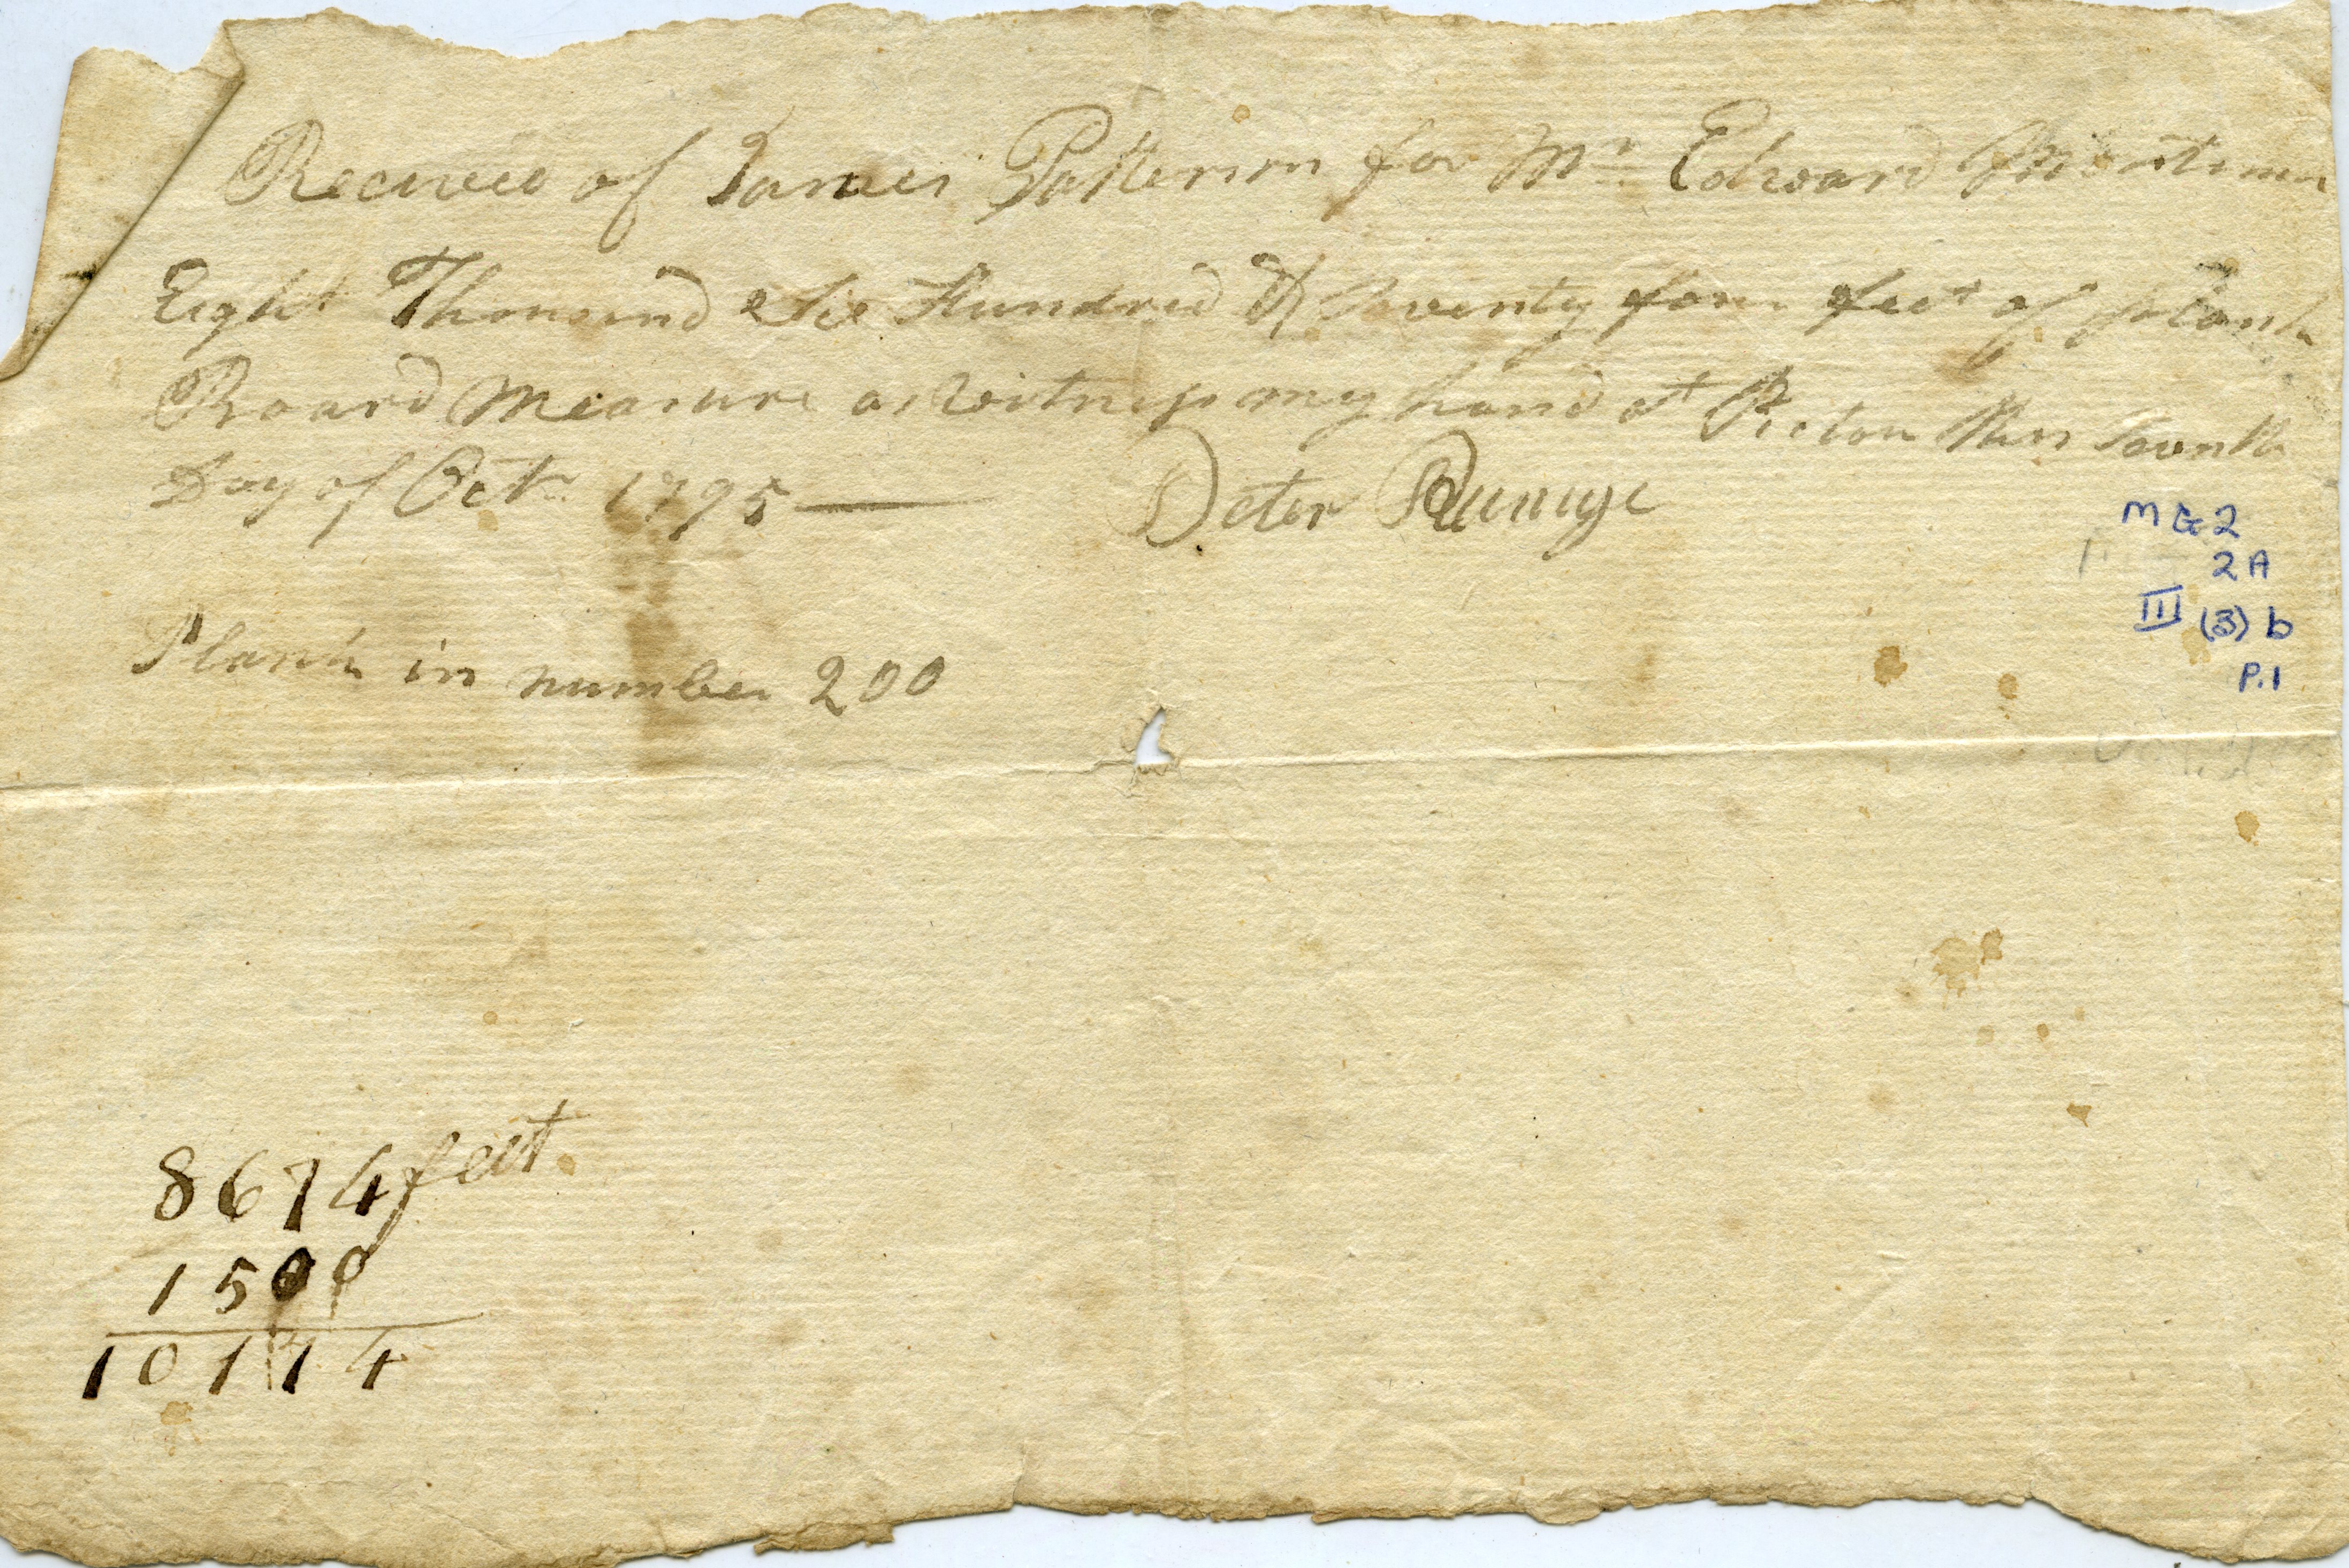 Received of James Patterson for Mr Edward Mortimer
Eight Thousand Six Hundred & Seventy four feet of plank
Board Measure as witness my hand at Pictou this Seventh
Day of Octr 1795
Peter Rumye
MG2
2A
III (3) b
P.1
Plank in number 200
8674 feet
1500
10174